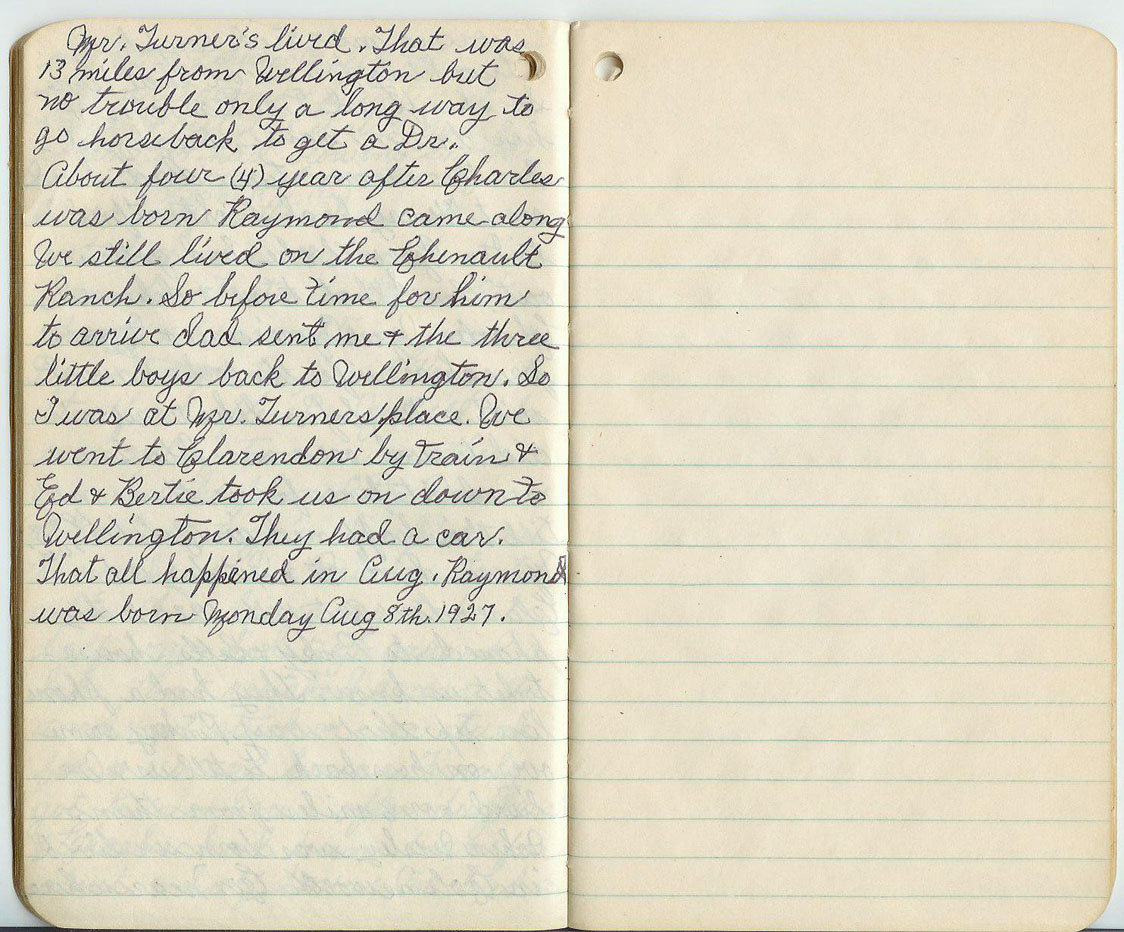 Mr. Turner's lived. That was
13 miles from Wellington but
no trouble only a long way to
go horseback to get a Dr.
About four (4) year after Charles
was born Raymond came along
We still lived on the Chenault
Ranch. So before time for him
to arrive dad sent me & the three
little boys back to Wellington. So
I was at Mr. Turners place. We
went to Clarendon by train &
Ed & Bertie took us on down to
Wellington. They had a car.
That all happened in Aug. Raymond
was born Monday Aug 8th. 1927.